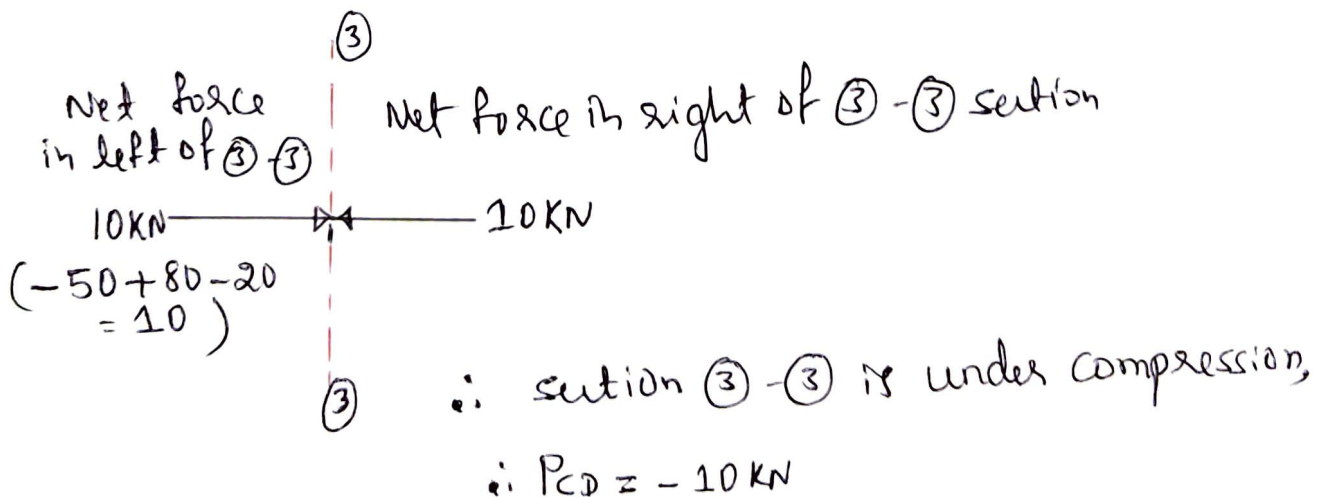 ③
Net force
in left of ③-③
Net force in right of ③-③ section
10KN
10KN
(-50+80-20
= 10)
③
∴ section ③-③ is under compression,
∴ PCD = - 10 KN